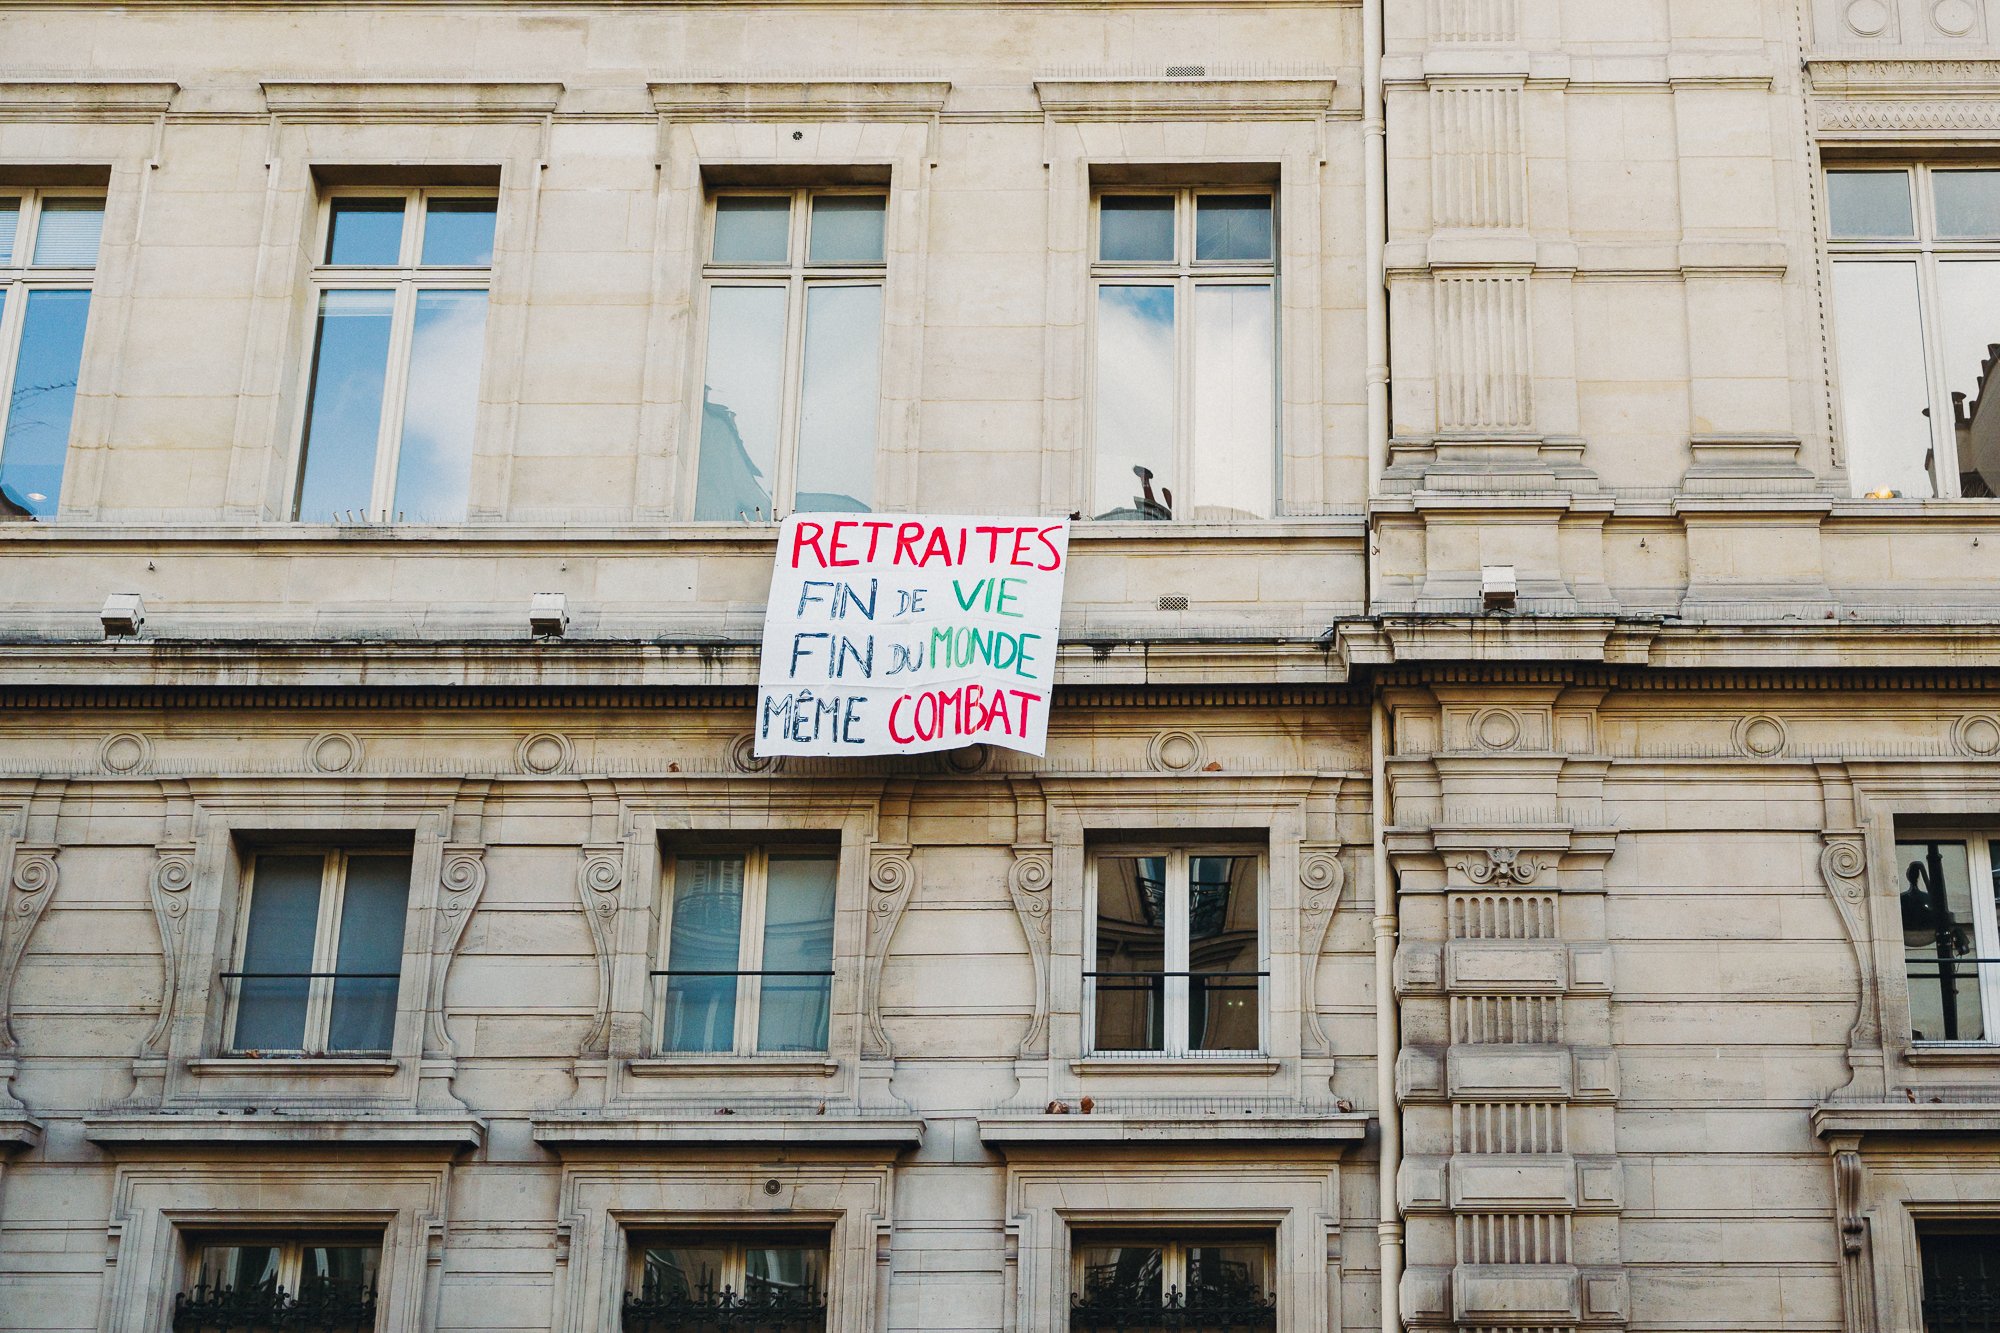 RETRAITES
FIN DE VIE
FIN DU MONDE
MÊME COMBAT